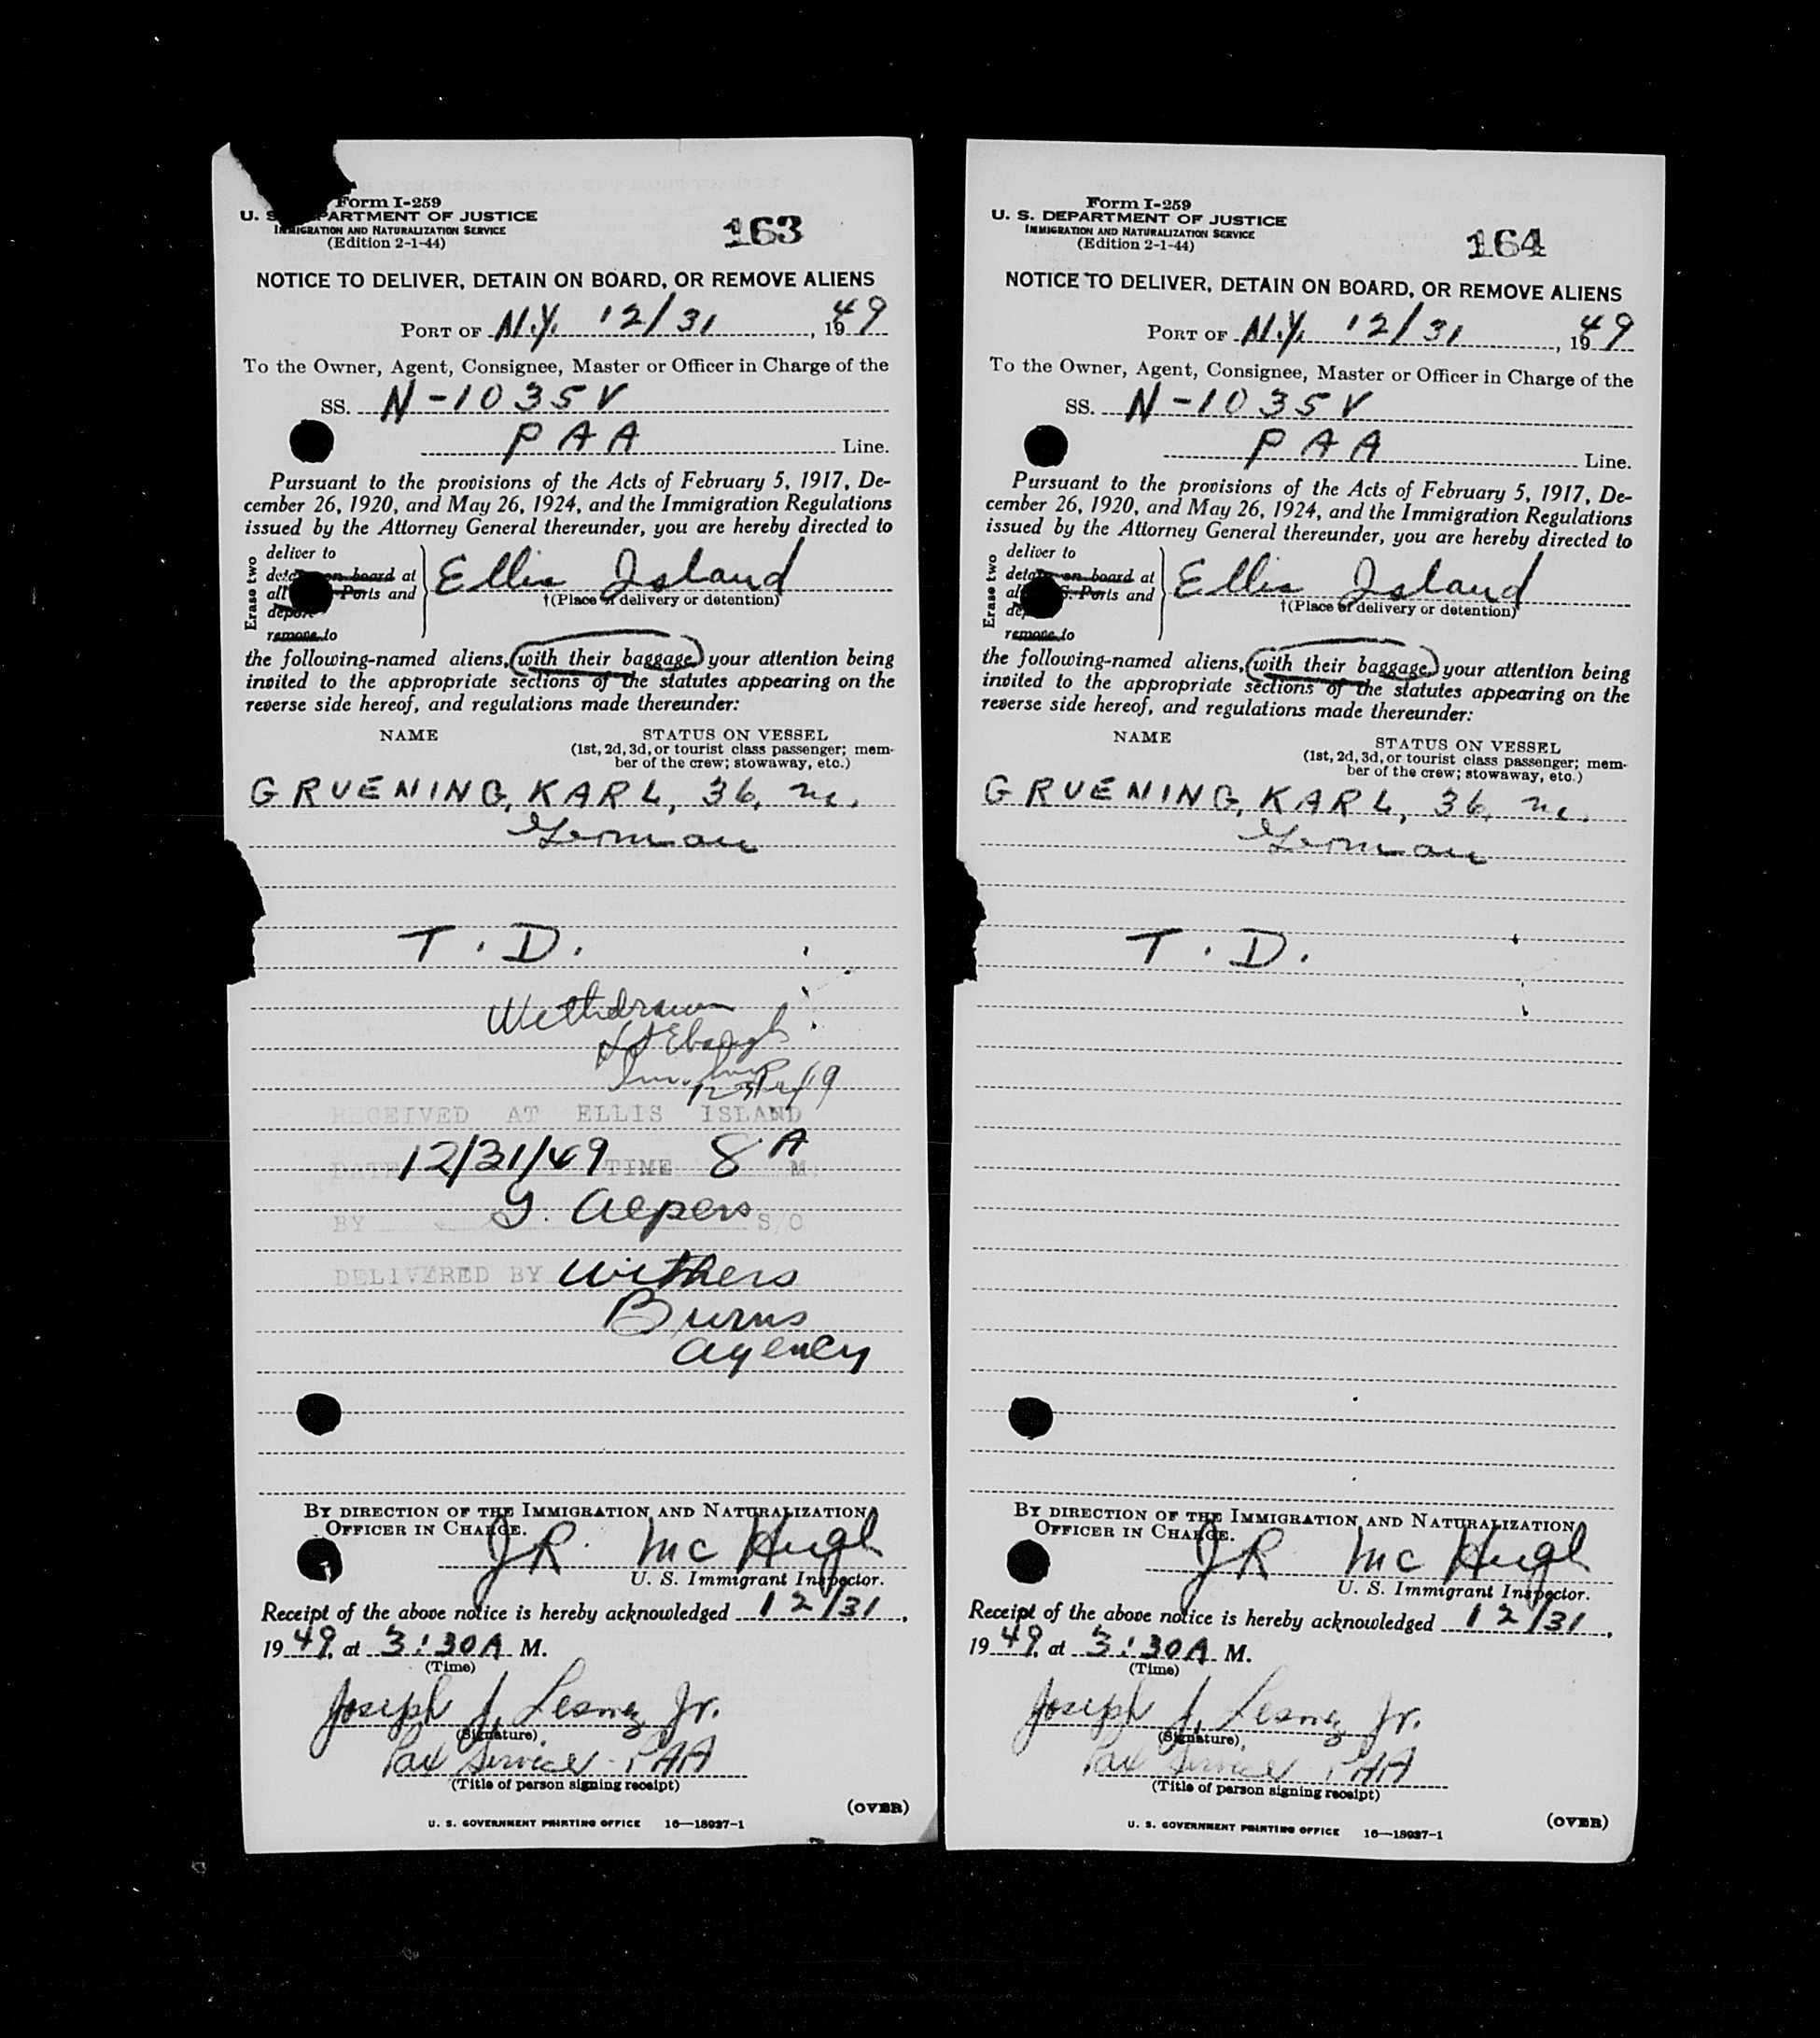 Form I-259
U. S. DEPARTMENT OF JUSTICE
IMMIGRATION AND NATURALIZATION SERVICE
(Edition 2-1-44)
163
NOTICE TO DELIVER, DETAIN ON BOARD, OR REMOVE ALIENS
PORT OF N.Y. 12/31, 1949
To the Owner, Agent, Consignee, Master or Officer in Charge of the
SS. N-1035V
PAA Line.
Pursuant to the provisions of the Acts of February 5, 1917, De-
cember 26, 1920, and May 26, 1924, and the Immigration Regulations
issued by the Attorney General thereunder, you are hereby directed to
Erase two
deliver to
on board at
all Ports and
remove to
Ellis Island
†(Place of delivery or detention)
the following-named aliens, with their baggage, your attention being
invited to the appropriate sections of the statutes appearing on the
reverse side hereof, and regulations made thereunder:
NAME
STATUS ON VESSEL
(1st, 2d, 3d, or tourist class passenger; mem-
ber of the crew; stowaway, etc.)
GRUENING, KARL, 36, m.
German
T. D.
Withdrawn
Ebaugh
Im. Insp
12/31/49
RECEIVED AT ELLIS ISLAND
DATE 12/31/49 TIME 8 A M.
BY G. Alpers S/O
DELIVERED BY Withers
Burns
Agency
BY DIRECTION OF THE IMMIGRATION AND NATURALIZATION
OFFICER IN CHARGE.
JR McHugh
U. S. Immigrant Inspector.
Receipt of the above notice is hereby acknowledged 12/31,
1949, at 3:30 A. M.
(Time)
Joseph J. Jr.
(Signature)
Pax Service - PAA
(Title of person signing receipt)
(OVER)
U. S. GOVERNMENT PRINTING OFFICE 16—18937-1
Form I-259
U. S. DEPARTMENT OF JUSTICE
IMMIGRATION AND NATURALIZATION SERVICE
(Edition 2-1-44)
164
NOTICE TO DELIVER, DETAIN ON BOARD, OR REMOVE ALIENS
PORT OF N.Y. 12/31, 1949
To the Owner, Agent, Consignee, Master or Officer in Charge of the
SS. N-1035V
PAA Line.
Pursuant to the provisions of the Acts of February 5, 1917, De-
cember 26, 1920, and May 26, 1924, and the Immigration Regulations
issued by the Attorney General thereunder, you are hereby directed to
Erase two
deliver to
detain on board at
Ports and
remove to
Ellis Island
†(Place of delivery or detention)
the following-named aliens, with their baggage, your attention being
invited to the appropriate sections of the statutes appearing on the
reverse side hereof, and regulations made thereunder:
NAME
STATUS ON VESSEL
(1st, 2d, 3d, or tourist class passenger; mem-
ber of the crew; stowaway, etc.)
GRUENING, KARL, 36, m.
German
T. D.
BY DIRECTION OF THE IMMIGRATION AND NATURALIZATION
OFFICER IN CHARGE.
JR McHugh
U. S. Immigrant Inspector.
Receipt of the above notice is hereby acknowledged 12/31,
1949, at 3:30 A. M.
(Time)
Joseph J. Jr.
(Signature)
Pax Service - PAA
(Title of person signing receipt)
(OVER)
U. S. GOVERNMENT PRINTING OFFICE 16—18937-1